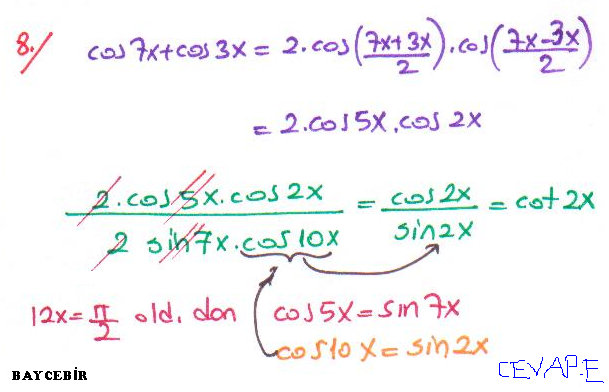 8./ cos7x+cos3x = 2.cos(7x+3x/2).cos(7x-3x/2)
= 2.cos5x.cos2x
2.cos5x.cos2x / 2 sin7x.cos10x = cos2x / sin2x = cot2x
12x = π/2 old. dan cos5x = sin7x
cos10x = sin2x
CEVAP.E
BAYCEBİR